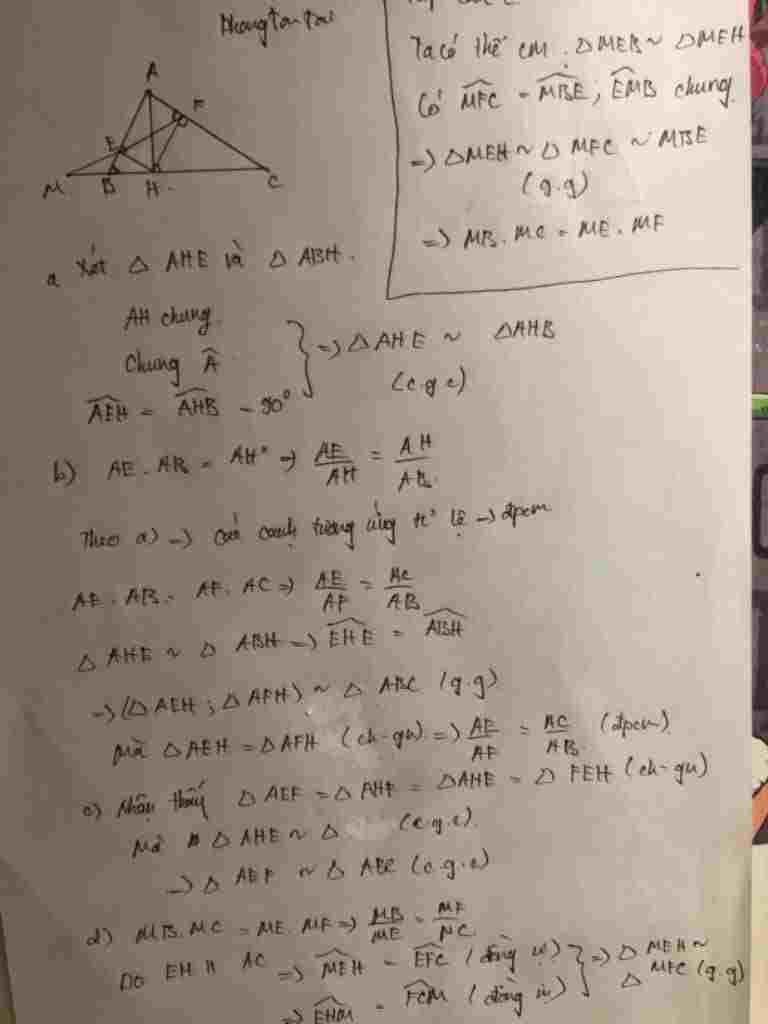 A
F
E
M
B
H
C
Ta có thể cm. △MEB ~ △MEH
Có MFC = MBE; EMB chung
=> △MEH ~ △MFC ~ MBE
(g.g)
=> MB. MC = ME. MF
a Xét △ AHE và △ ABH.
AH chung.
Chung A
AEH = AHB = 90°
=> △AHE ~ △AHB
(c.g.c)
b) AE. AB = AH² => AE/AH = AH/AB
Theo a) -> cạnh tương ứng tỉ lệ -> đpcm
AE. AB = AF. AC => AE/AF = AC/AB
△ AHE ~ △ ABH => EHE = ABH
-> (△AEH; △AFH) ~ △ ABC (g.g)
Mà △AEH = △AFH (ch-gn) => AE/AF = AC/AB (đpcm)
c) Nhận thấy △AEF = △AHF = △AHE = △ FEH (ch-gn)
Mà △AHE ~ △ (c.g.c)
-> △ AEF ~ △ ABC (c.g.c)
d) MB. MC = ME. MF => MB/ME = MF/MC
Do EH // AC => MEH = EFC (đồng vị)
=> EHM = FCM (đồng vị)
=> △MEH ~ △MFC (g.g)